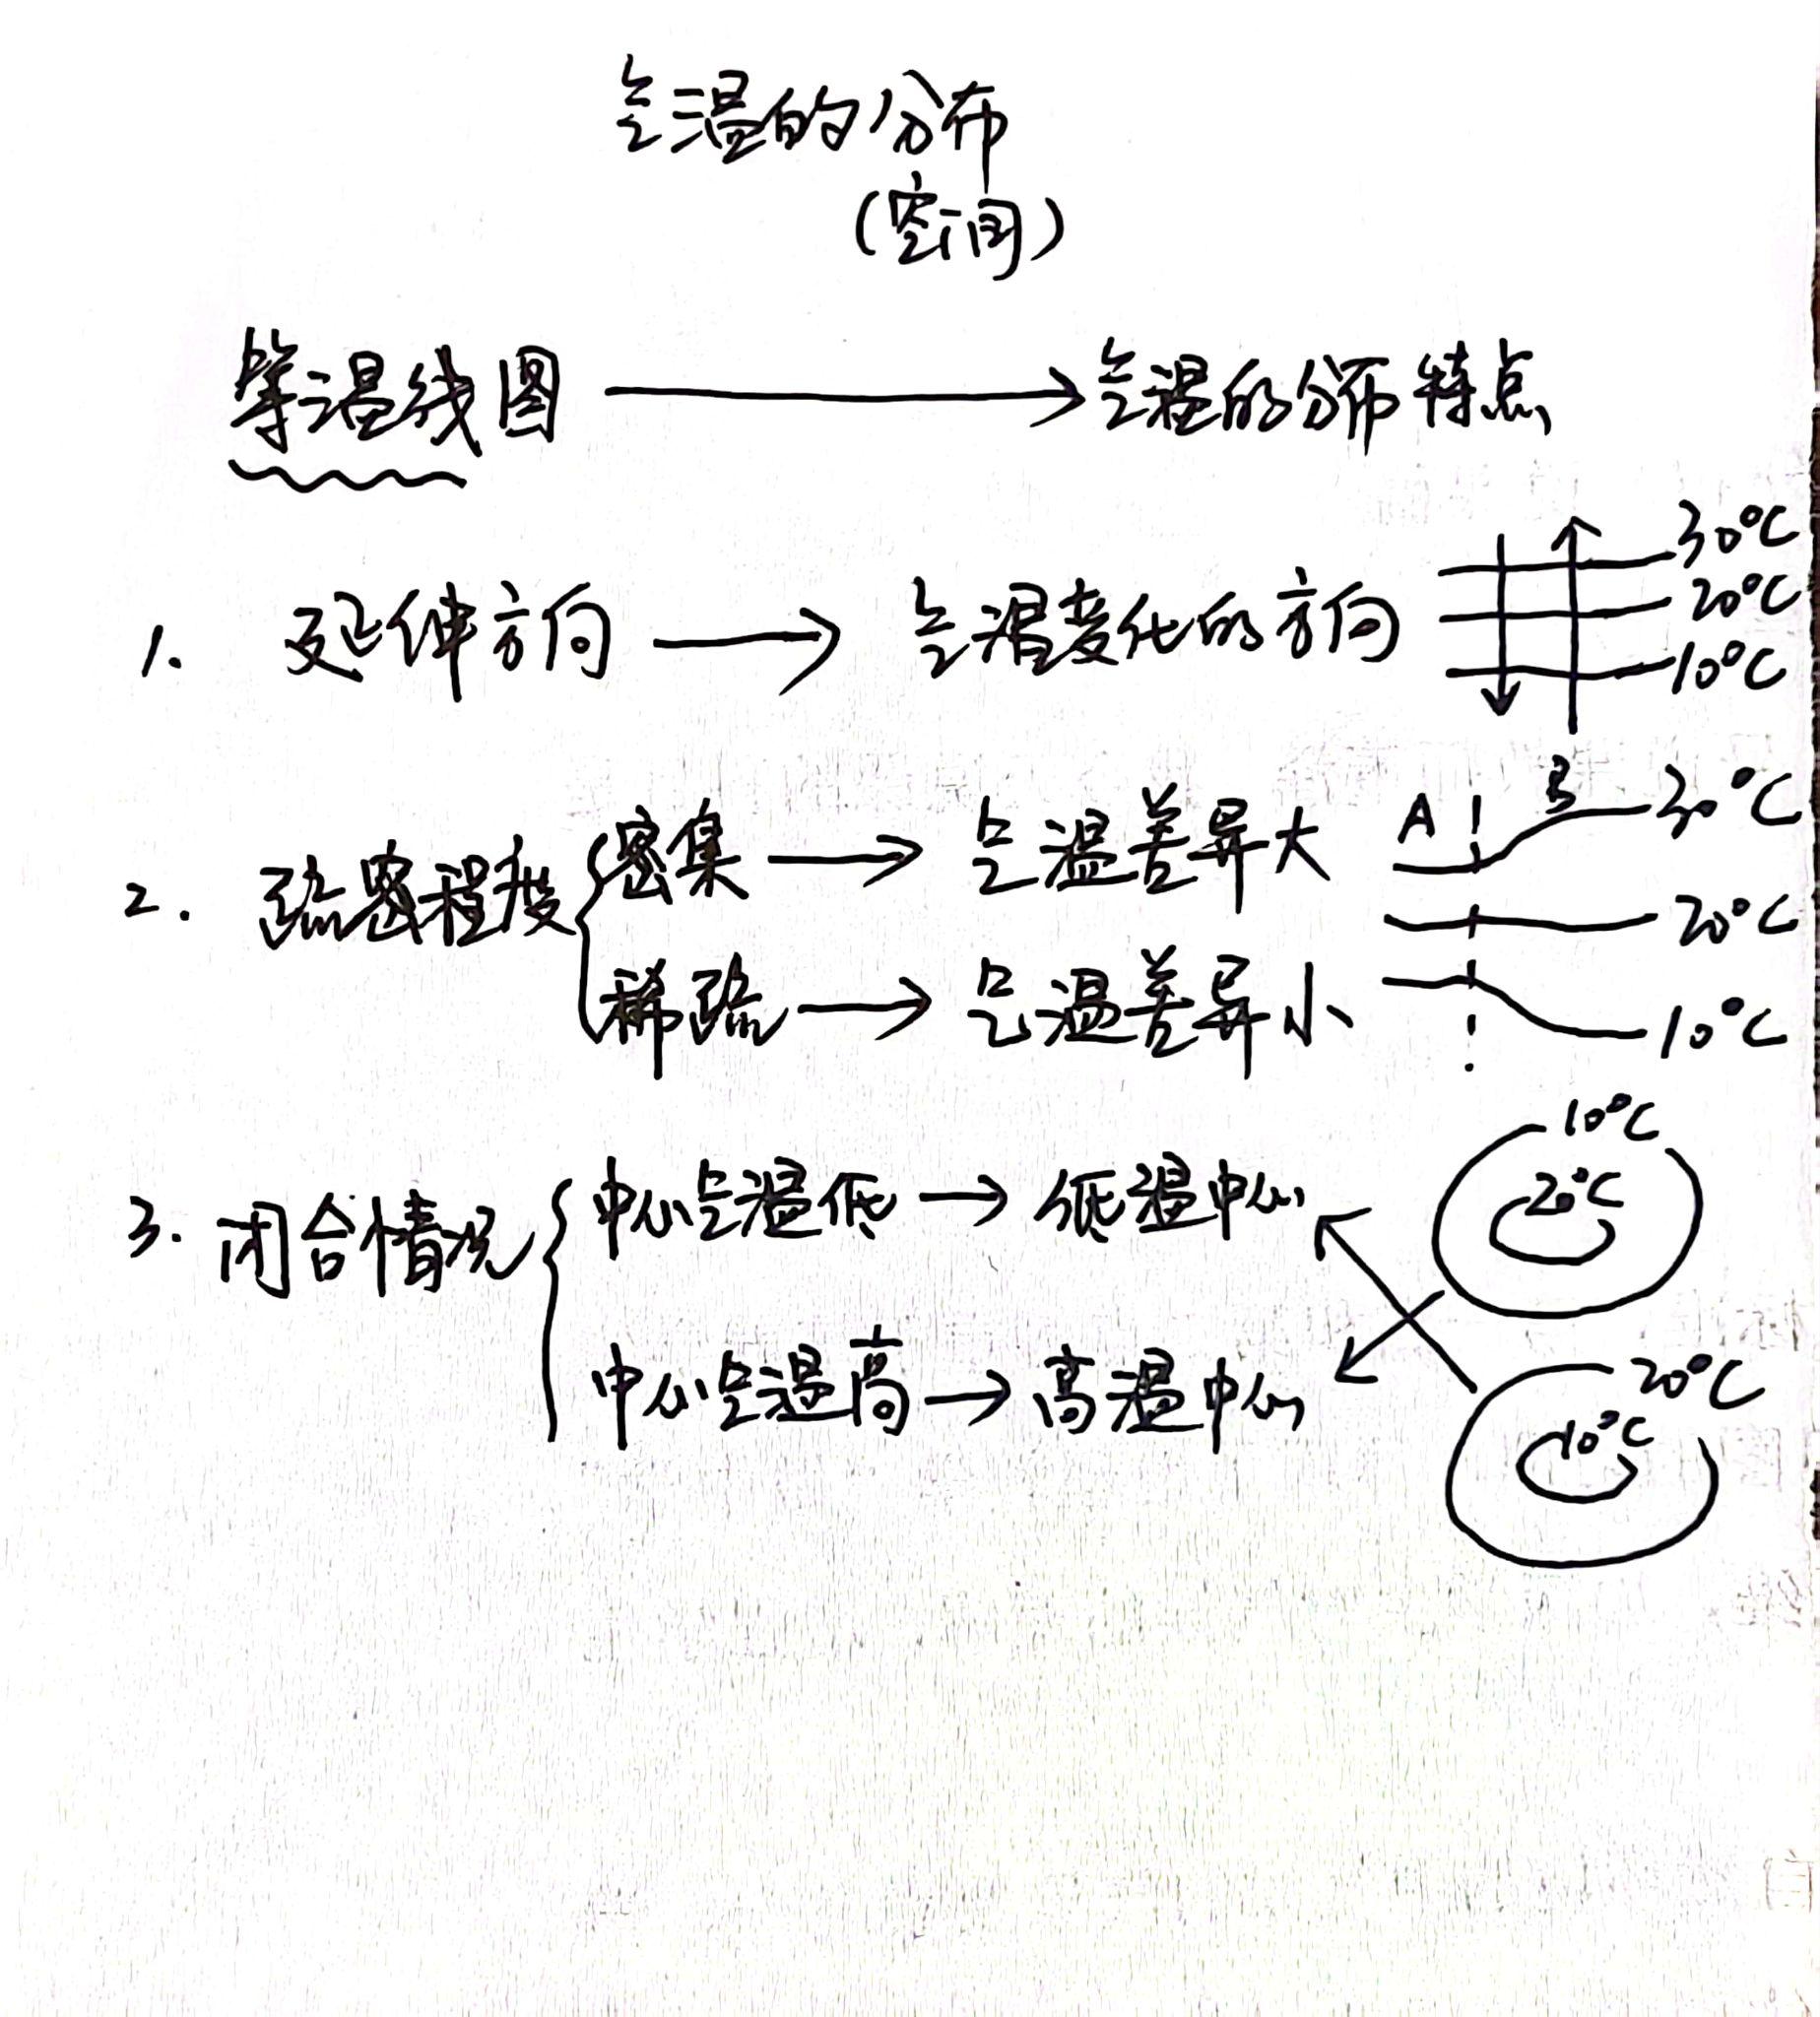 气温的分布
(空间)
等温线图 → 气温的分布特点
1. 延伸方向 → 气温变化的方向
30°C
20°C
10°C
2. 疏密程度
密集 → 气温差异大
稀疏 → 气温差异小
A B 30°C
20°C
10°C
3. 闭合情况
中心气温低 → 低温中心
中心气温高 → 高温中心
10°C
20°C
20°C
10°C